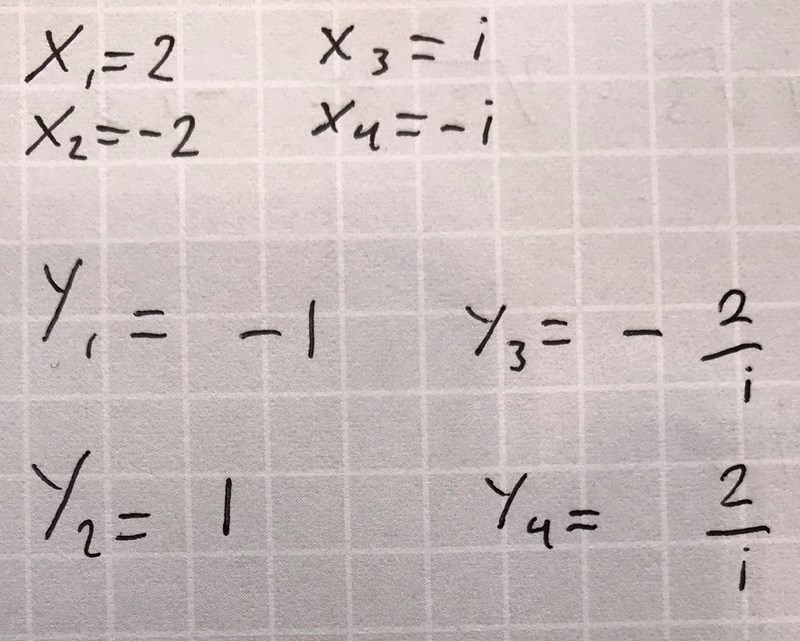 x₁ = 2   x₃ = i
x₂ = -2   x₄ = -i
y₁ = -1   y₃ = - 2/i
y₂ = 1   y₄ = 2/i